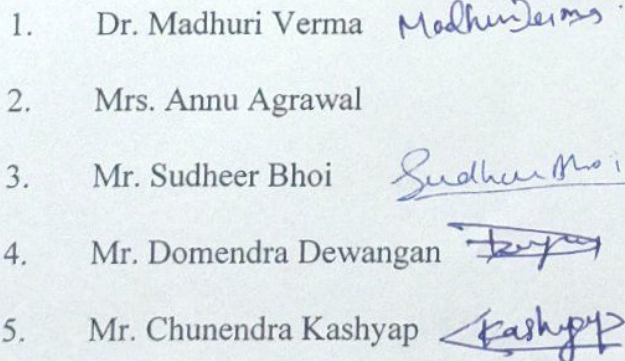 1. Dr. Madhuri Verma Madhuri Verma
2. Mrs. Annu Agrawal
3. Mr. Sudheer Bhoi Sudheer Bhoi
4. Mr. Domendra Dewangan
5. Mr. Chunendra Kashyap Kashyap